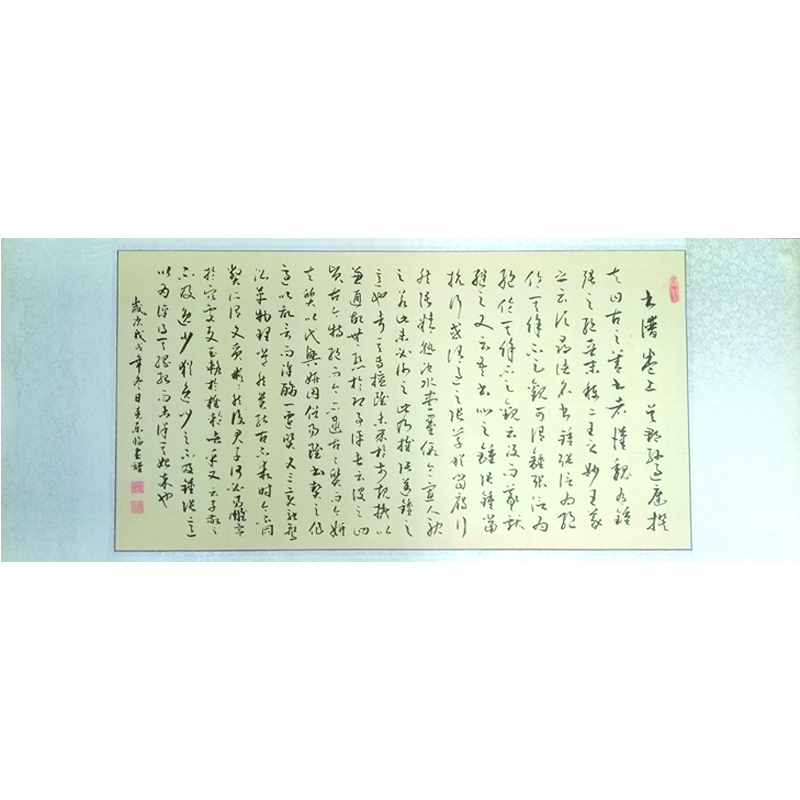 書譜卷上 吳郡孫過庭撰
夫自古之善書者漢魏有鍾
張之絕晉末稱二王之妙王羲
之云頃尋諸名書鍾張信為絕
倫其餘不足觀可謂鍾張信為
絕倫其餘不足觀云沒而羲獻
繼之又云吾書比之鍾張鍾當
抗行或謂過之張草猶當雁行
然張精熟池水盡墨假令寡人耽
之若此未必謝之此乃推張邁鍾之
意也考其專擅雖未果於前規摭以
兼通故無慚於即事評者云彼之四
賢古今特絕而今不逮古古質而今妍
夫質以代興妍因俗易雖書契之作
適以記言而淳醨一遷質文三變馳鶩
沿革物理常然貴能古不乖時今不同
弊所謂文質彬彬然後君子何必易雕宮
於穴處反玉輅於椎輪者乎又云子敬之
不及逸少猶逸少之不及鍾張意
以為評得其綱紀而未詳其始卒也
歲次戊戌年冬日臨書譜